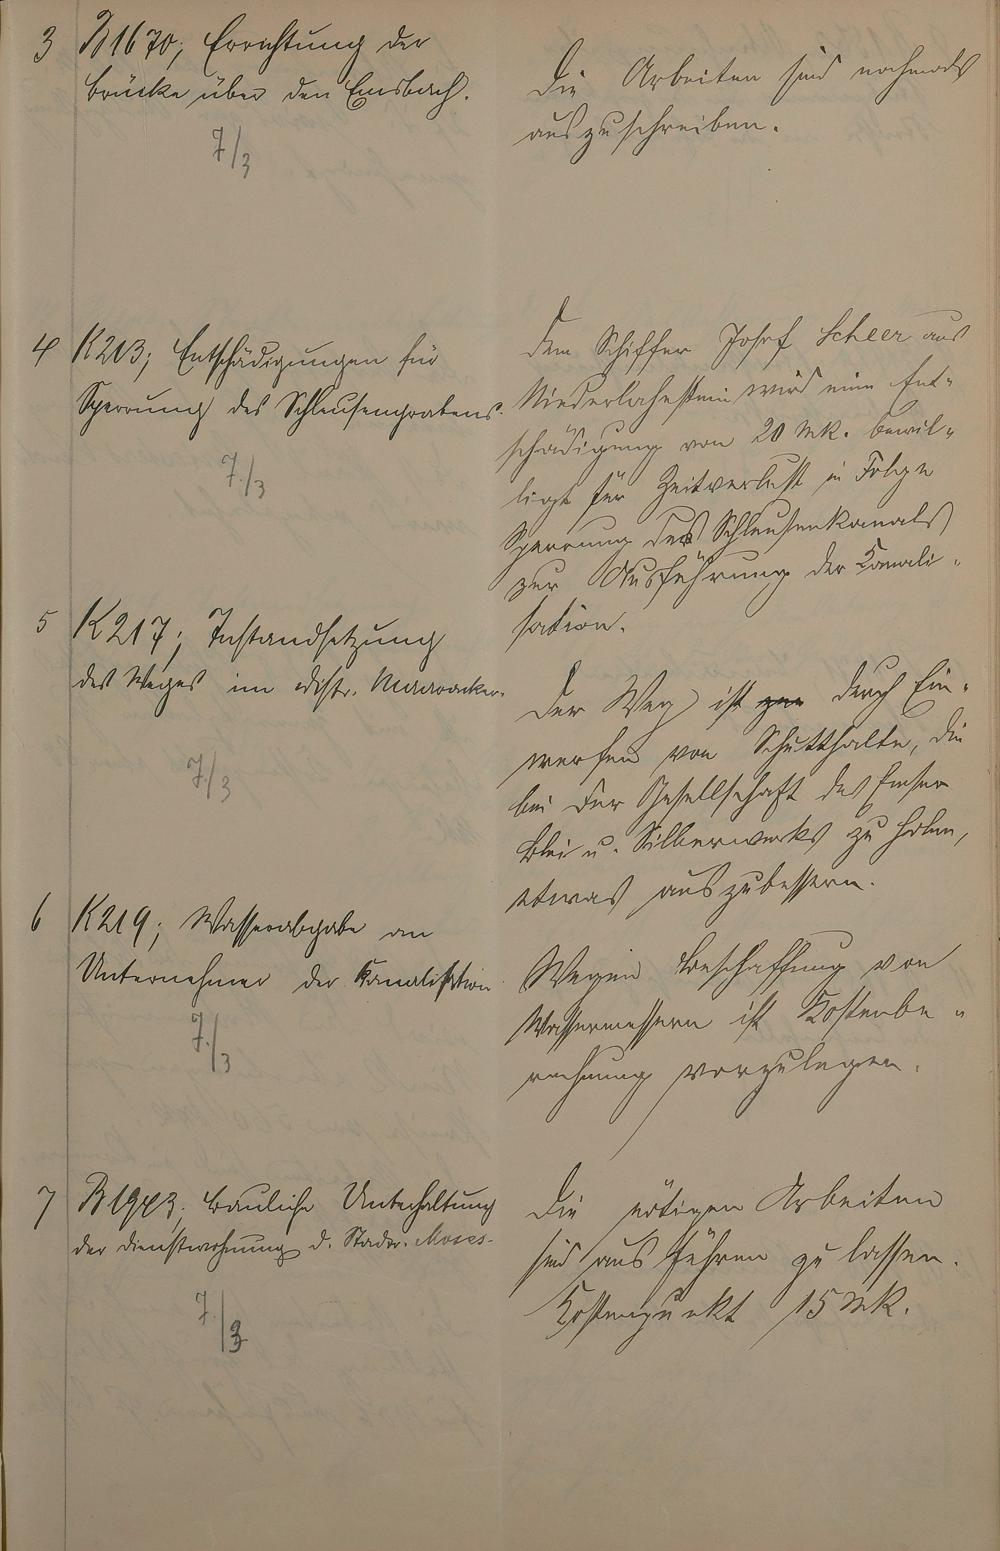 3 B1670; Errichtung der
Brücke über den Emsbach.
7/3
Die Arbeiten sind nochmals
auszuschreiben.
4 K213; Entschädigungen für
Sperrung des Schleusengrabens.
7./3
Dem Schiffer Josef Scheer aus
Niederlahnstein wird eine Ent-
schädigung von 20 Mk. bewil-
ligt für Zeitverlust in Folge
Sperrung des Schleusenkanals
zur Ausführung der Kanali-
sation.
5 K217; Instandsetzung
des Weges im Distr.
7/3
Der Weg ist durch Ein-
werfen von Schutthalte, die
bei der Gesellschaft des Emser
Blei u. Silberwerks zu holen,
etwas auszubessern.
6 K219; Wasserabgabe an
Unternehmer der Kanalisation
7./3
Wegen Beschaffung von
Wassermessern ist Kostenbe-
rechnung vorzulegen.
7 Bauliche Unterhaltung
der Dienstwohnung d. Moses-
7./3
Die nötigen Arbeiten
sind ausführen zu lassen.
Kostenpunkt 15 Mk.